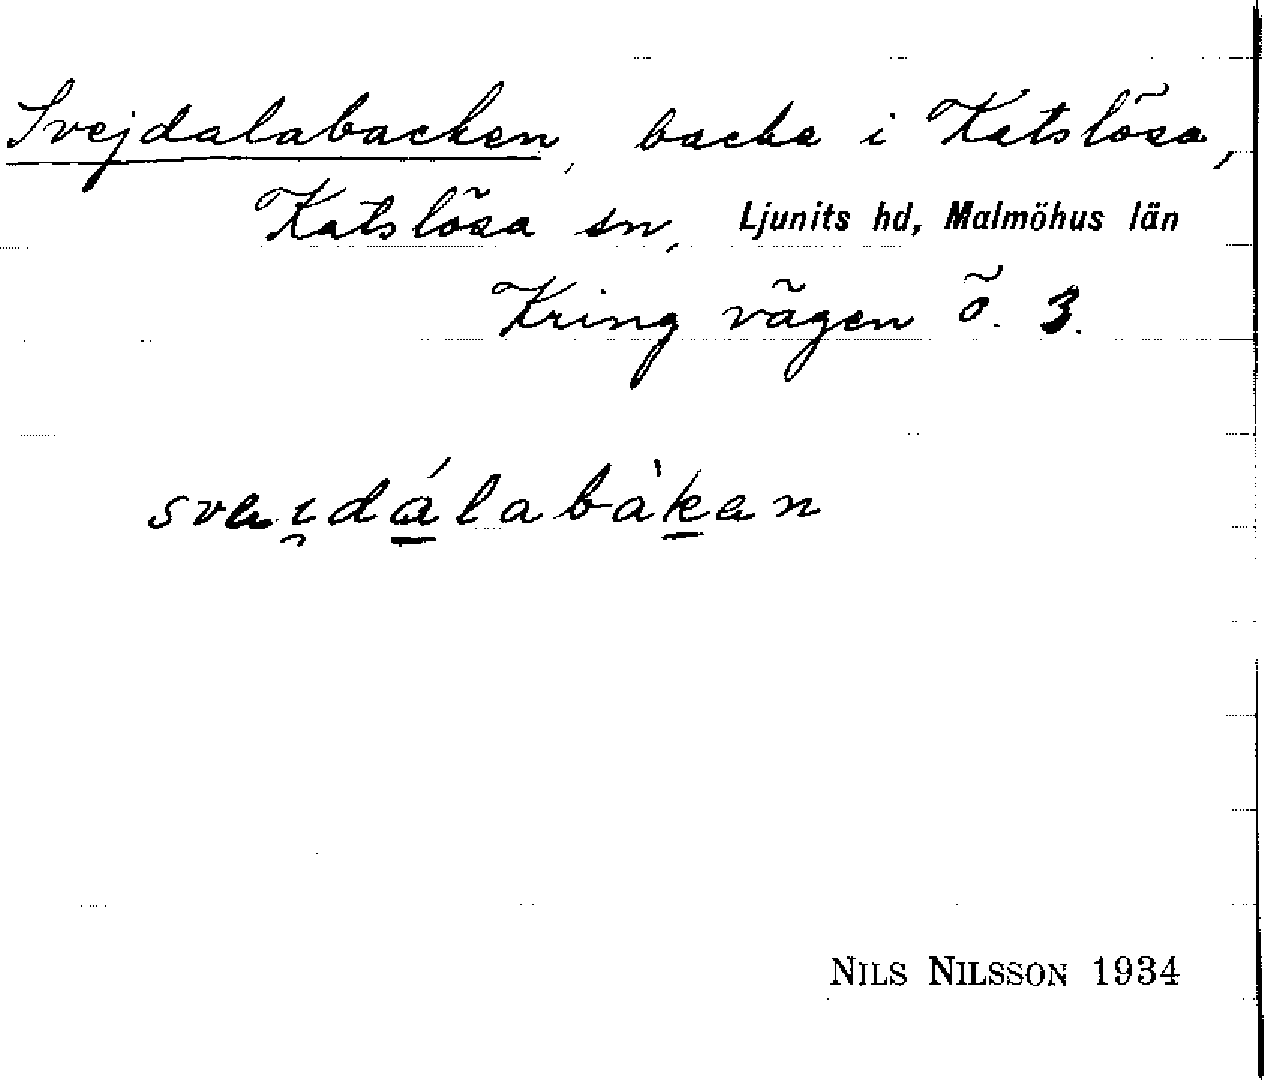 Svejdalabacken, backe i Katslösa,
Katslösa sn, Ljunits hd, Malmöhus län
Kring vägen ö. 3.
NILS NILSSON 1934